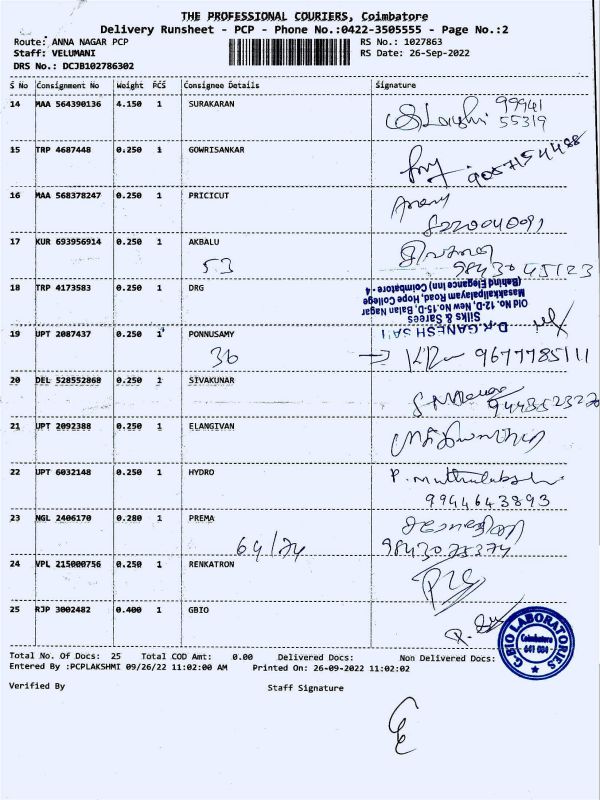 THE PROFESSIONAL COURIERS, Coimbatore
Delivery Runsheet - PCP - Phone No.:0422-3505555 - Page No.:2
Route: ANNA NAGAR PCP RS No.: 1027863
Staff: VELUMANI RS Date: 26-Sep-2022
DRS No.: DCJB102786302
S No Consignment No Weight PCS Consignee Details Signature
14 MAA 564390136 4.150 1 SURAKARAN 99941
55319
15 TRP 4687448 0.250 1 GOWRISANKAR
16 MAA 568378247 0.250 1 PRICICUT
8220040091
17 KUR 693956914 0.250 1 AKBALU
53 98430 45123
18 TRP 4173583 0.250 1 DRG
D.R.GANESH
Silks & Sarees
Old No. 12-D, New No.15-D, Balan Nagar
Masakkalipalayam Road, Hope College
(Behind Elegance Inn) Coimbatore - 4
19 UPT 2087437 0.250 1 PONNUSAMY
36 9677785111
20 DEL 528552868 0.250 1 SIVAKUNAR
21 UPT 2092388 0.250 1 ELANGIVAN
22 UPT 6032148 0.250 1 HYDRO P. Muthulakshmi
9944643893
23 NGL 2406170 0.280 1 PREMA
69/74
24 VPL 215000756 0.250 1 RENKATRON
25 RJP 3002482 0.400 1 GBIO
G-BIO LABORATORIES
Coimbatore
641 004
Total No. Of Docs: 25 Total COD Amt: 0.00 Delivered Docs: Non Delivered Docs:
Entered By :PCPLAKSHMI 09/26/22 11:02:00 AM Printed On: 26-09-2022 11:02:02
Verified By Staff Signature